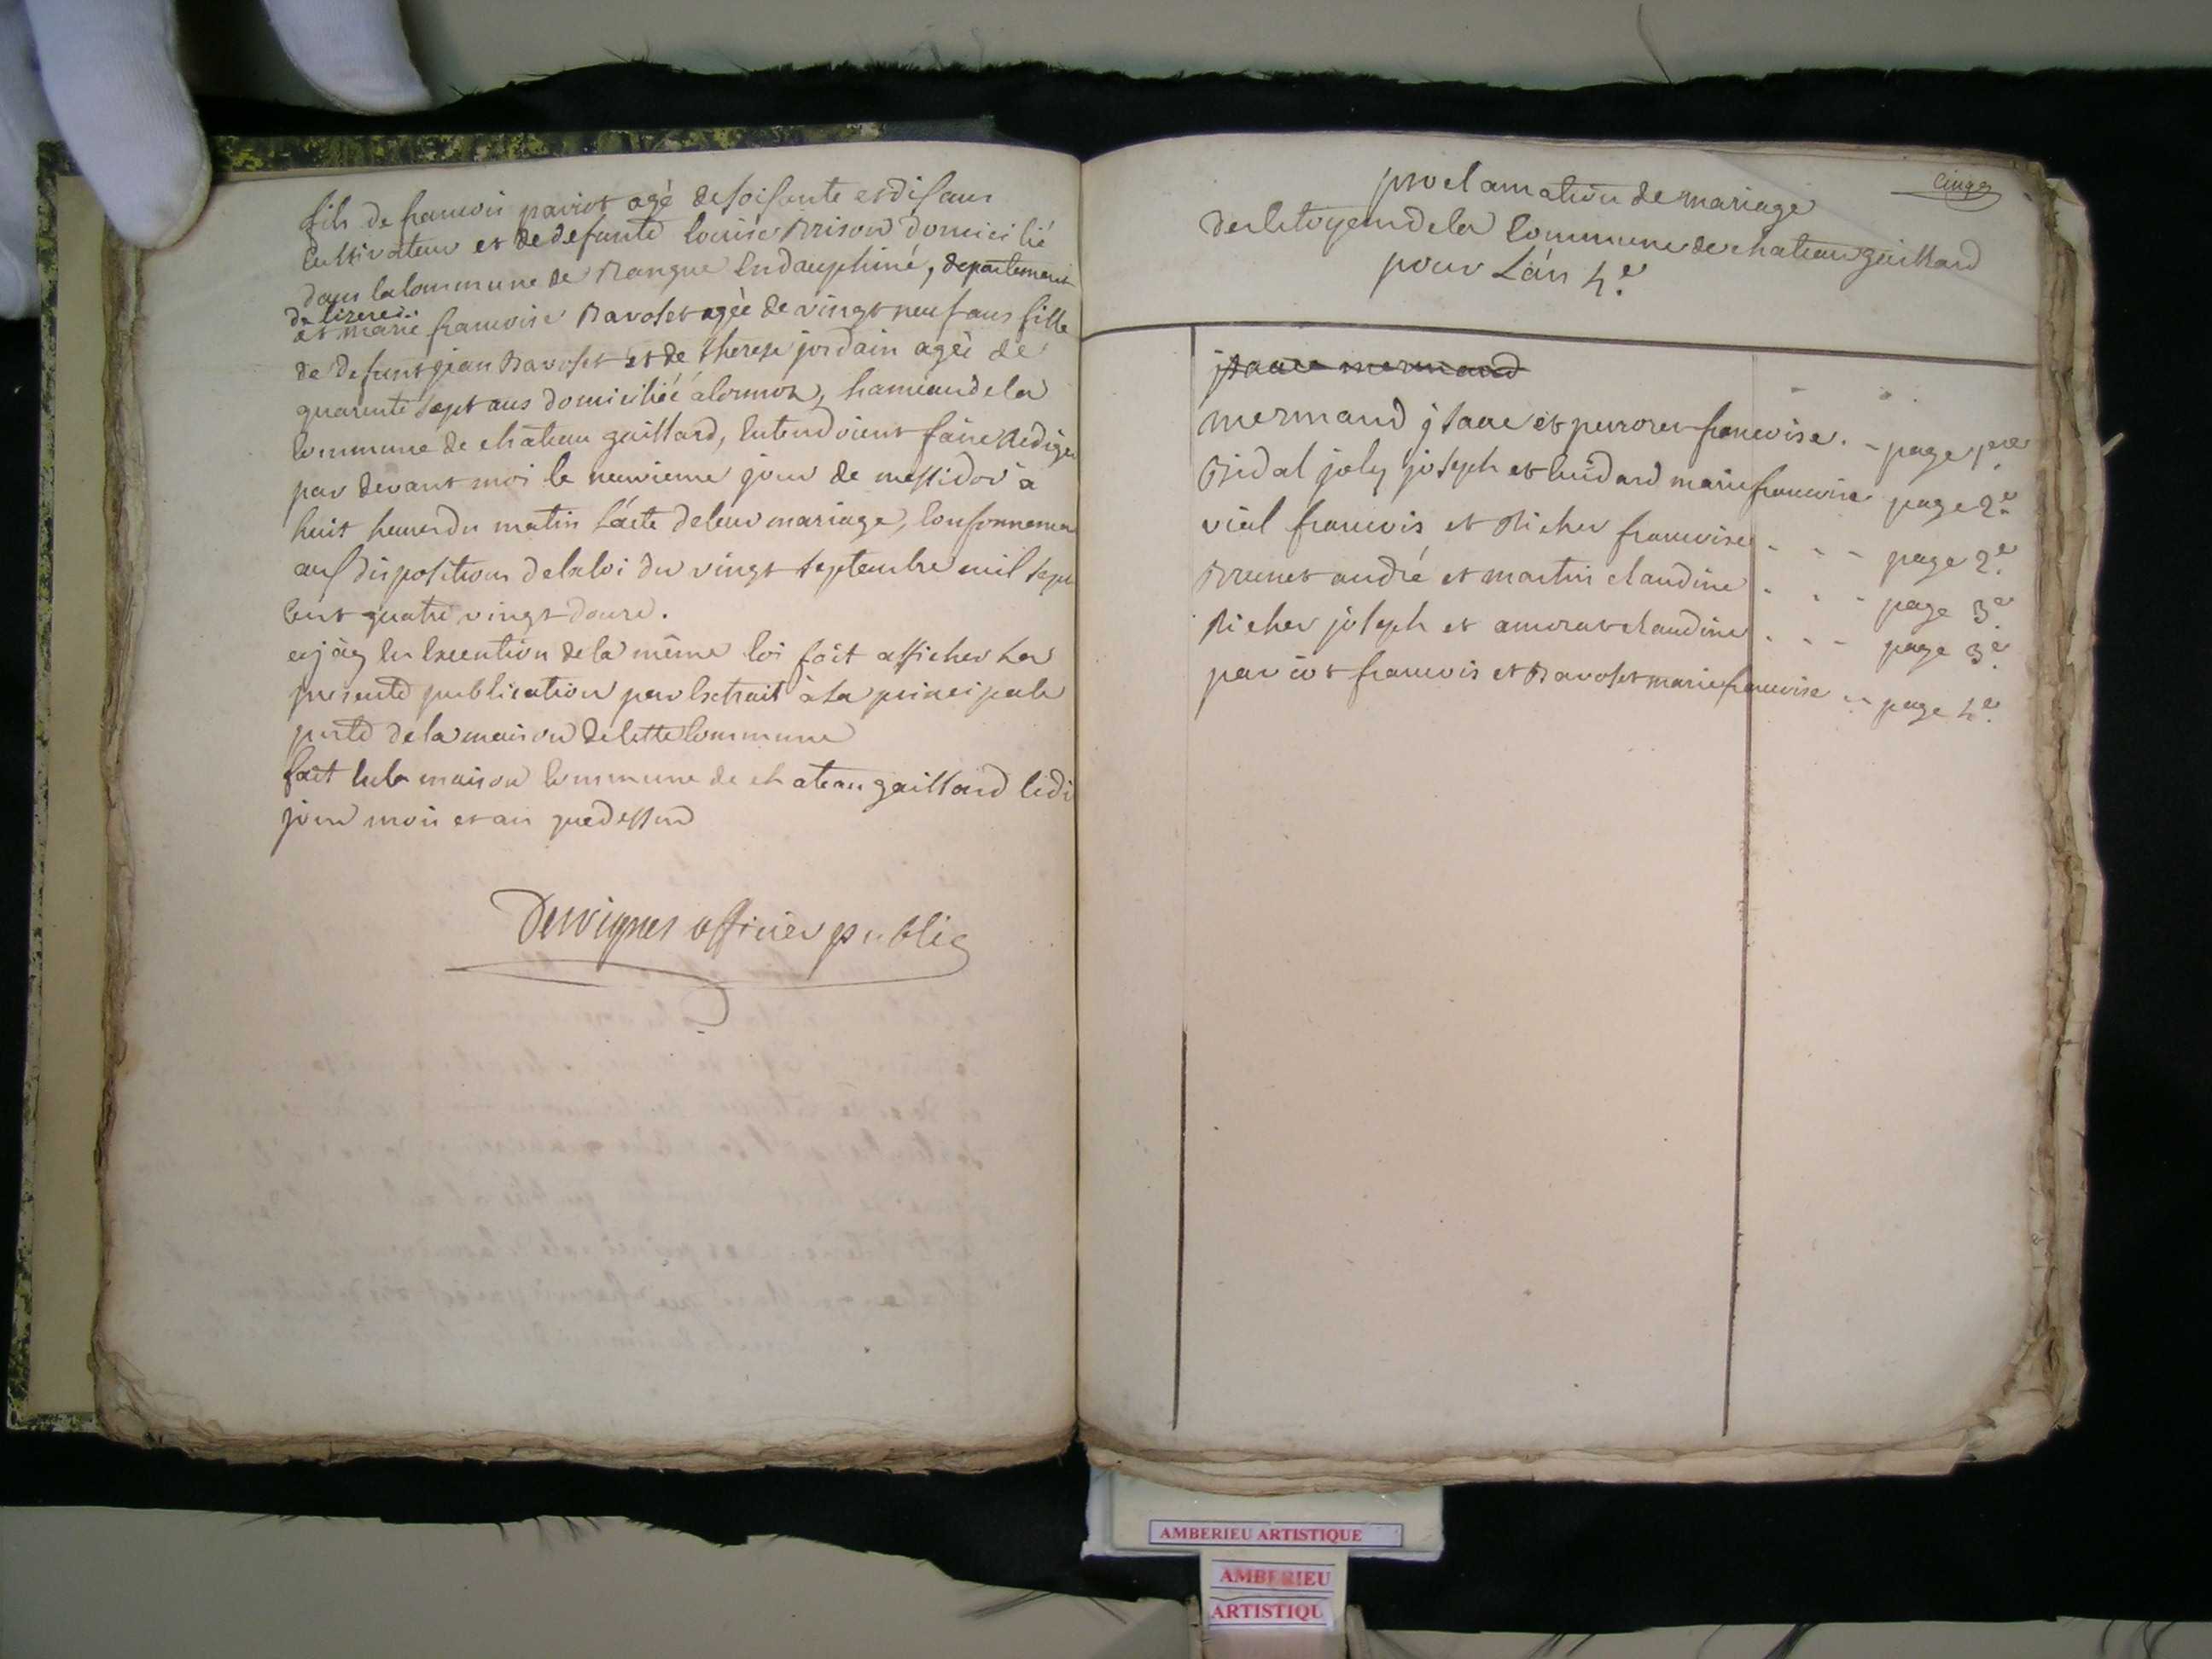 fils de francois pariot agé de soisante et dis ans
cultivateur et de defunte louise Brison domicilié
dans la commune de Rangue en dauphiné, departement
de lizere
et marie francoise Ravoset agée de vingt neuf ans fille
de defunt jean Ravoset et de therese jordain agée de
quarente sept ans domiciliée à cormoz, hameau de la
commune de château gaillard, entendoient faire rediger
par devant moi le neuvieme jour de messidor à
huit heures du matin l'acte de leur mariage, conformemen
aux dispositions de la loi du vingt septembre mil sept
cent quatre vingt douze.
et j'ay en execution de la même loi fait afficher la
presente publication par lextrait à la principale
porte de la maison de cette commune
fait en la maison commune de chateau gaillard ledi
jour mois et an que dessus
Desvignes officier public
cinqe
proclamation de mariage
des citoyens de la commune de chateau gaillard
pour L'an 4.e
jsaace mermand
mermand jsaac et perroret francoise. - page 1ere
Bidal joly joseph et cuidard marie francoise page 2.e
vial francois et Richer francoise - - - page 2.e
Brunet andré et martin claudine - - - page 3.e
Richer joseph et amorat claudine - - - page 3.e
pariot francois et Ravoset marie francoise - - page 4.e
AMBERIEU ARTISTIQUE
AMBERIEU
ARTISTIQU